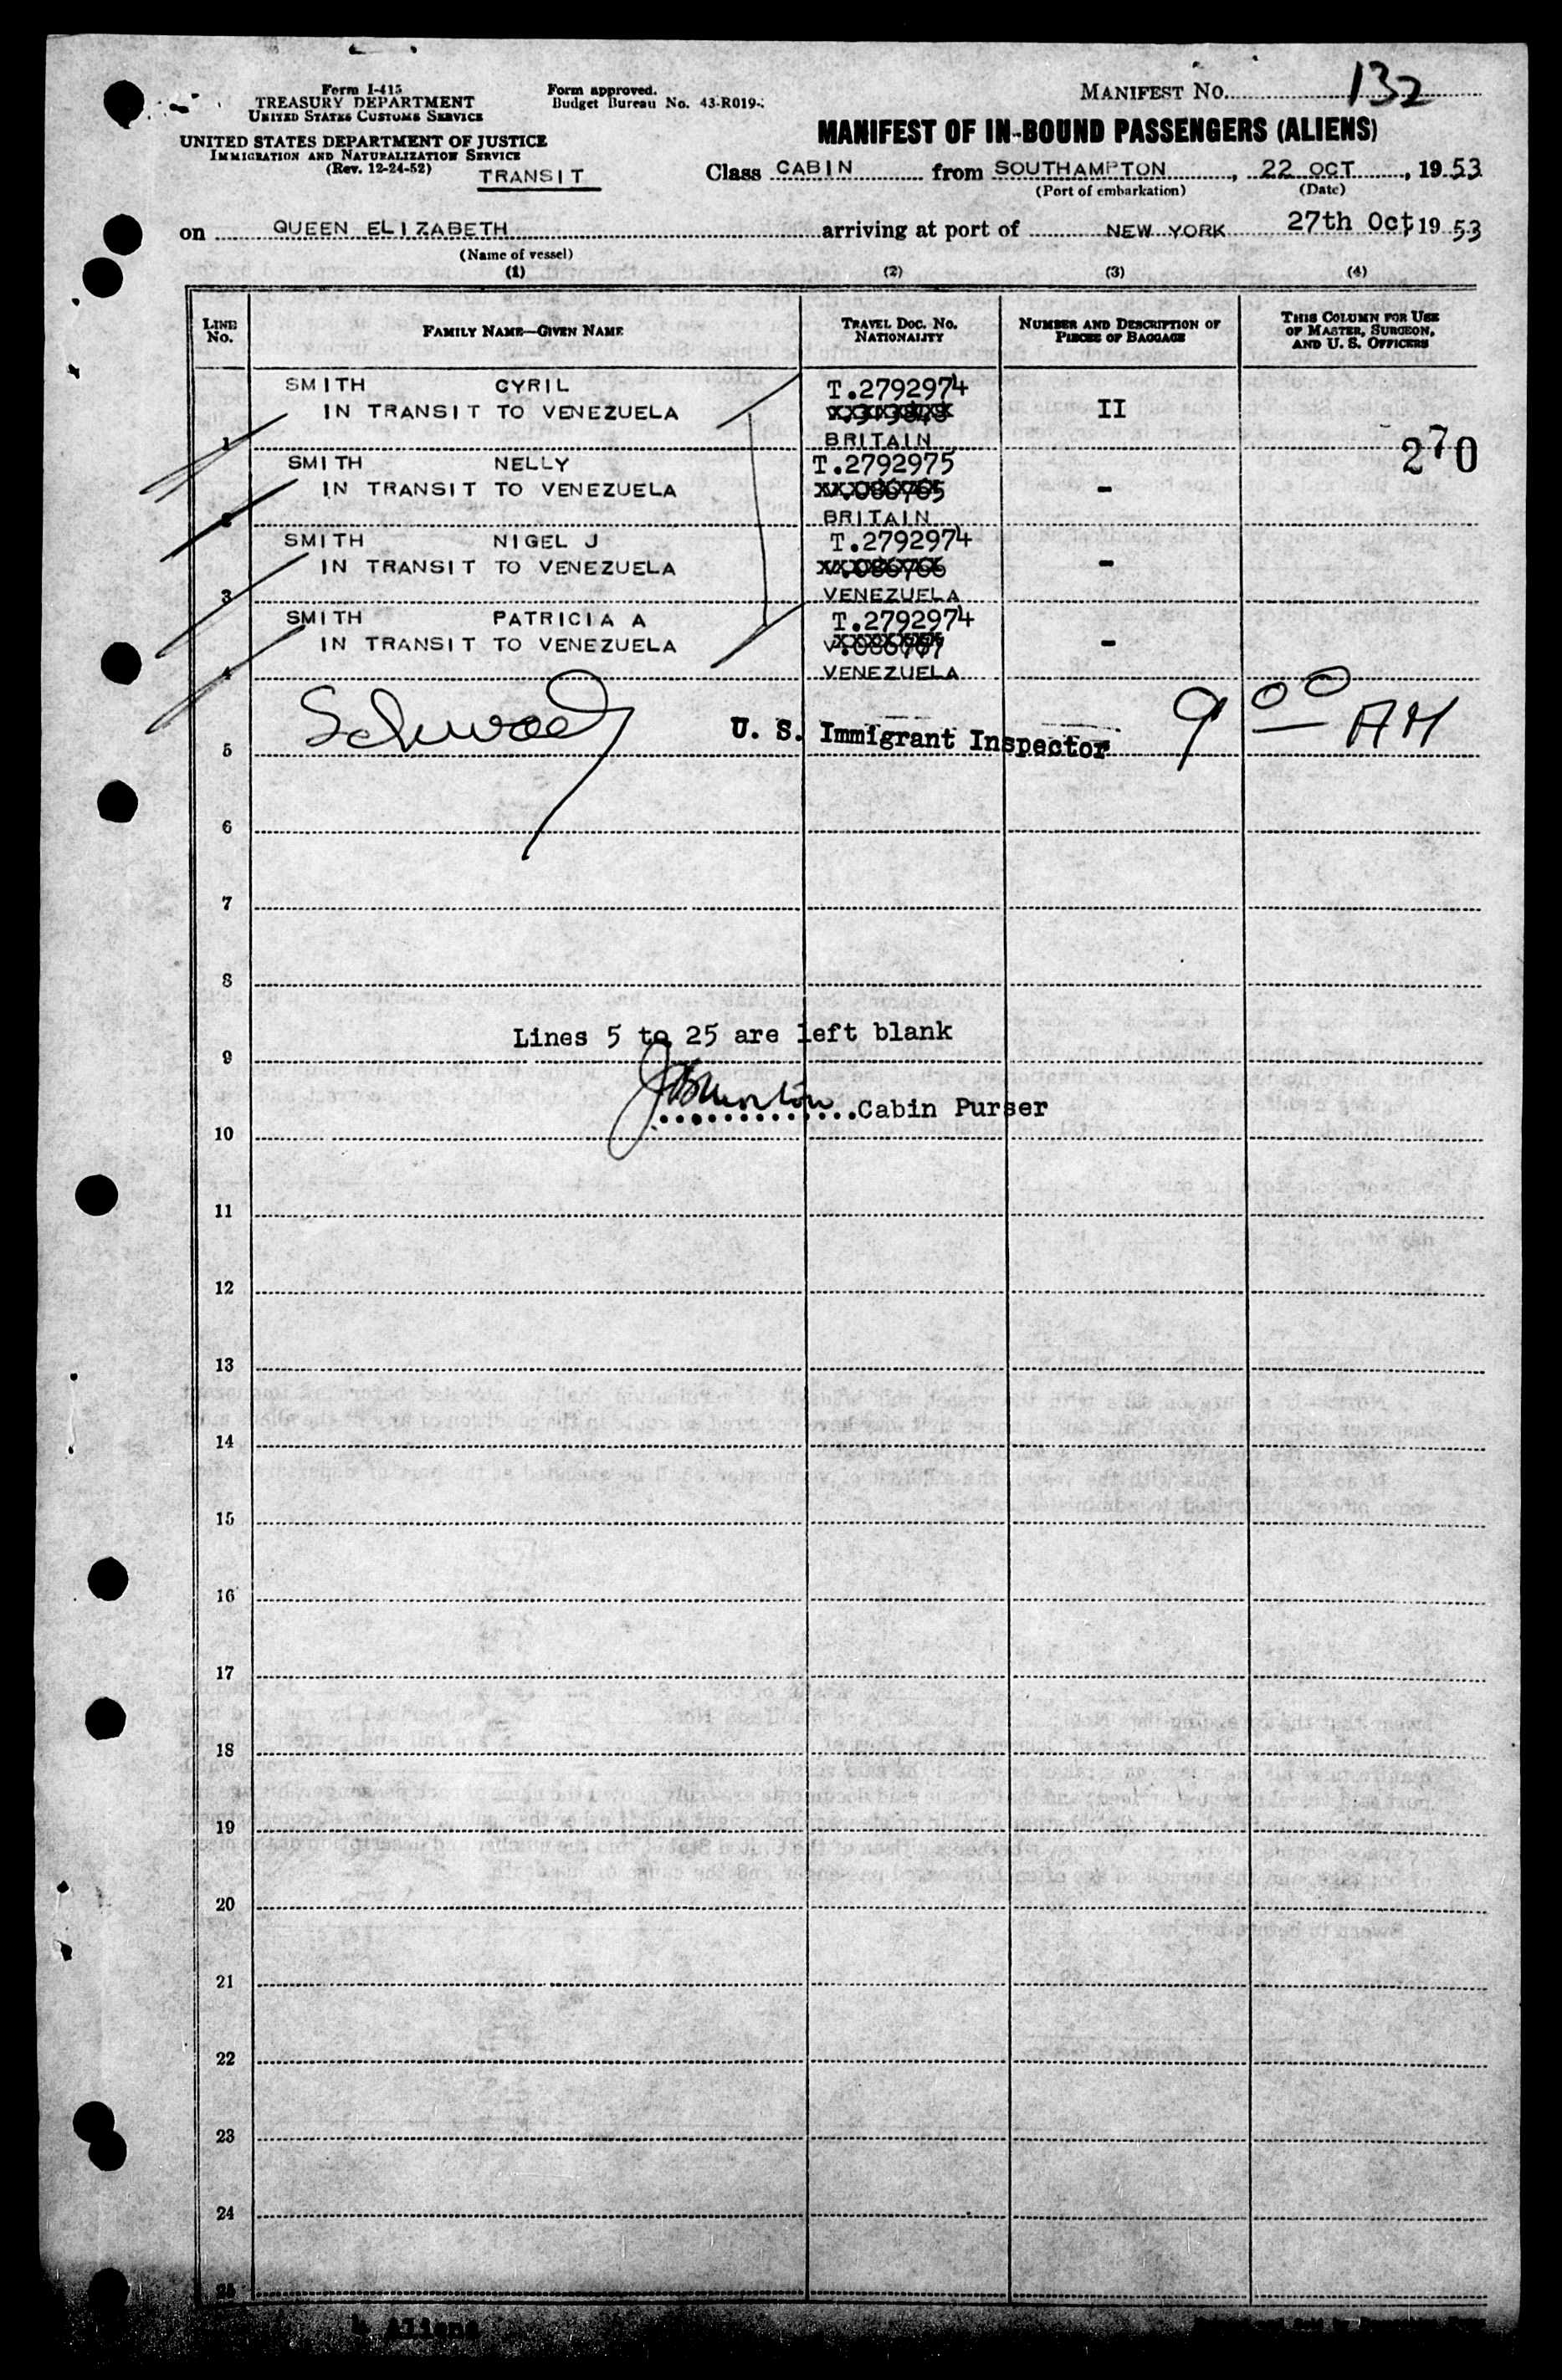 Form I-415
TREASURY DEPARTMENT
UNITED STATES CUSTOMS SERVICE
UNITED STATES DEPARTMENT OF JUSTICE
IMMIGRATION AND NATURALIZATION SERVICE
(Rev. 12-24-52)
TRANSIT
Form approved.
Budget Bureau No. 43-R019-
MANIFEST NO. 132
MANIFEST OF IN-BOUND PASSENGERS (ALIENS)
Class CABIN from SOUTHAMPTON, 22 OCT, 1953
(Port of embarkation) (Date)
on QUEEN ELIZABETH arriving at port of NEW YORK 27th Oct, 1953
(Name of vessel)
(1) (2) (3) (4)
LINE NO. FAMILY NAME—GIVEN NAME TRAVEL DOC. NO. NATIONALITY NUMBER AND DESCRIPTION OF PIECES OF BAGGAGE THIS COLUMN FOR USE OF MASTER, SURGEON, AND U. S. OFFICERS
SMITH CYRIL T.2792974
IN TRANSIT TO VENEZUELA II
1 BRITAIN 270
SMITH NELLY T.2792975
IN TRANSIT TO VENEZUELA -
2 BRITAIN
SMITH NIGEL J T.2792974
IN TRANSIT TO VENEZUELA -
3 VENEZUELA
SMITH PATRICIA A T.2792974
IN TRANSIT TO VENEZUELA -
4 VENEZUELA
U. S. Immigrant Inspector 9 00 AM
5
6
7
8
Lines 5 to 25 are left blank
9
Cabin Purser
10
11
12
13
14
15
16
17
18
19
20
21
22
23
24
25
4 Aliens